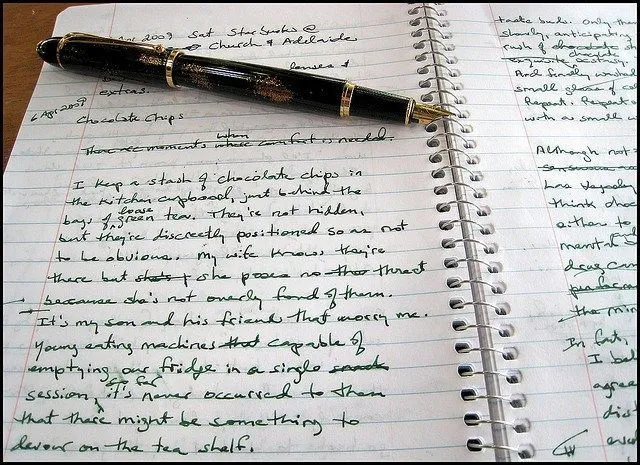 Apr 2009 Sat Starbucks @
Church & Adelaide
lenses &
extras.
6 Apr 2009
Chocolate Chips
There are moments where when comfort is needed.
I keep a stash of chocolate chips in
the kitchen cupboard, just behind the
bags of loose green tea. They're not hidden,
but they're discreetly positioned so as not
to be obvious. My wife knows they're
there but she's she poses no threat
because she's not overly fond of them.
It's my son and his friend that worry me.
Young eating machines that capable of
emptying our fridge in a single
session, so far it's never occurred to them
that there might be something to
devour on the tea shelf.
taste buds. Only then
slowly, anticipating
rush of chocolate
chocolate
exquisite ecstasy.
And finally washed
small glass of
Repeat. Repeat
with a small
Although not
has
think
either to
drug
the
In fact,
I
agree